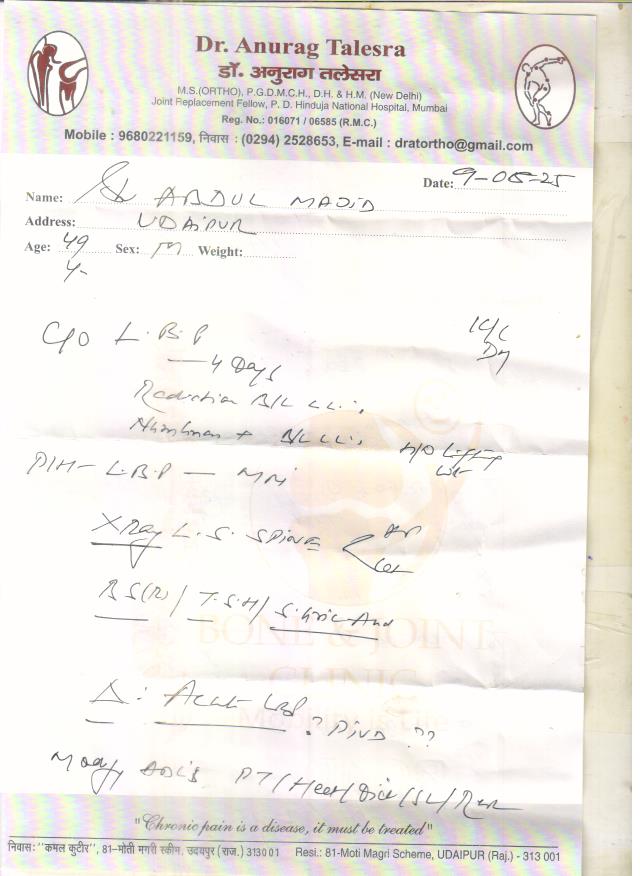 Dr. Anurag Talesra
डॉ. अनुराग तलेसरा
M.S.(ORTHO), P.G.D.M.C.H., D.H. & H.M. (New Delhi)
Joint Replacement Fellow, P. D. Hinduja National Hospital, Mumbai
Reg. No.: 016071 / 06585 (R.M.C.)
Mobile : 9680221159, निवास : (0294) 2528653, E-mail : dratortho@gmail.com
Date: 9-08-25
Name: ABDUL MAJID
Address: UDAIPUR
Age: 49 Sex: M Weight:
Y-
C/O L.B.P
— 4 Days
Radiation B/L LL
+ B/L LL
H/O Lifting
wt
P/H - L.B.P — MRI
XRay L.S. SPINE AP
Lat
BS(R) / T.S.H / S. Uric Acid
BONE & JOINT
CLINIC
Δ: Acute LBP ? PIVD ??
Modify ADL's PT/Heat/Diet/SL/
"Chronic pain is a disease, it must be treated"
निवास: "कमल कुटीर", 81-मोती मगरी स्कीम, उदयपुर (राज.) 313001 Resi.: 81-Moti Magri Scheme, UDAIPUR (Raj.) - 313 001